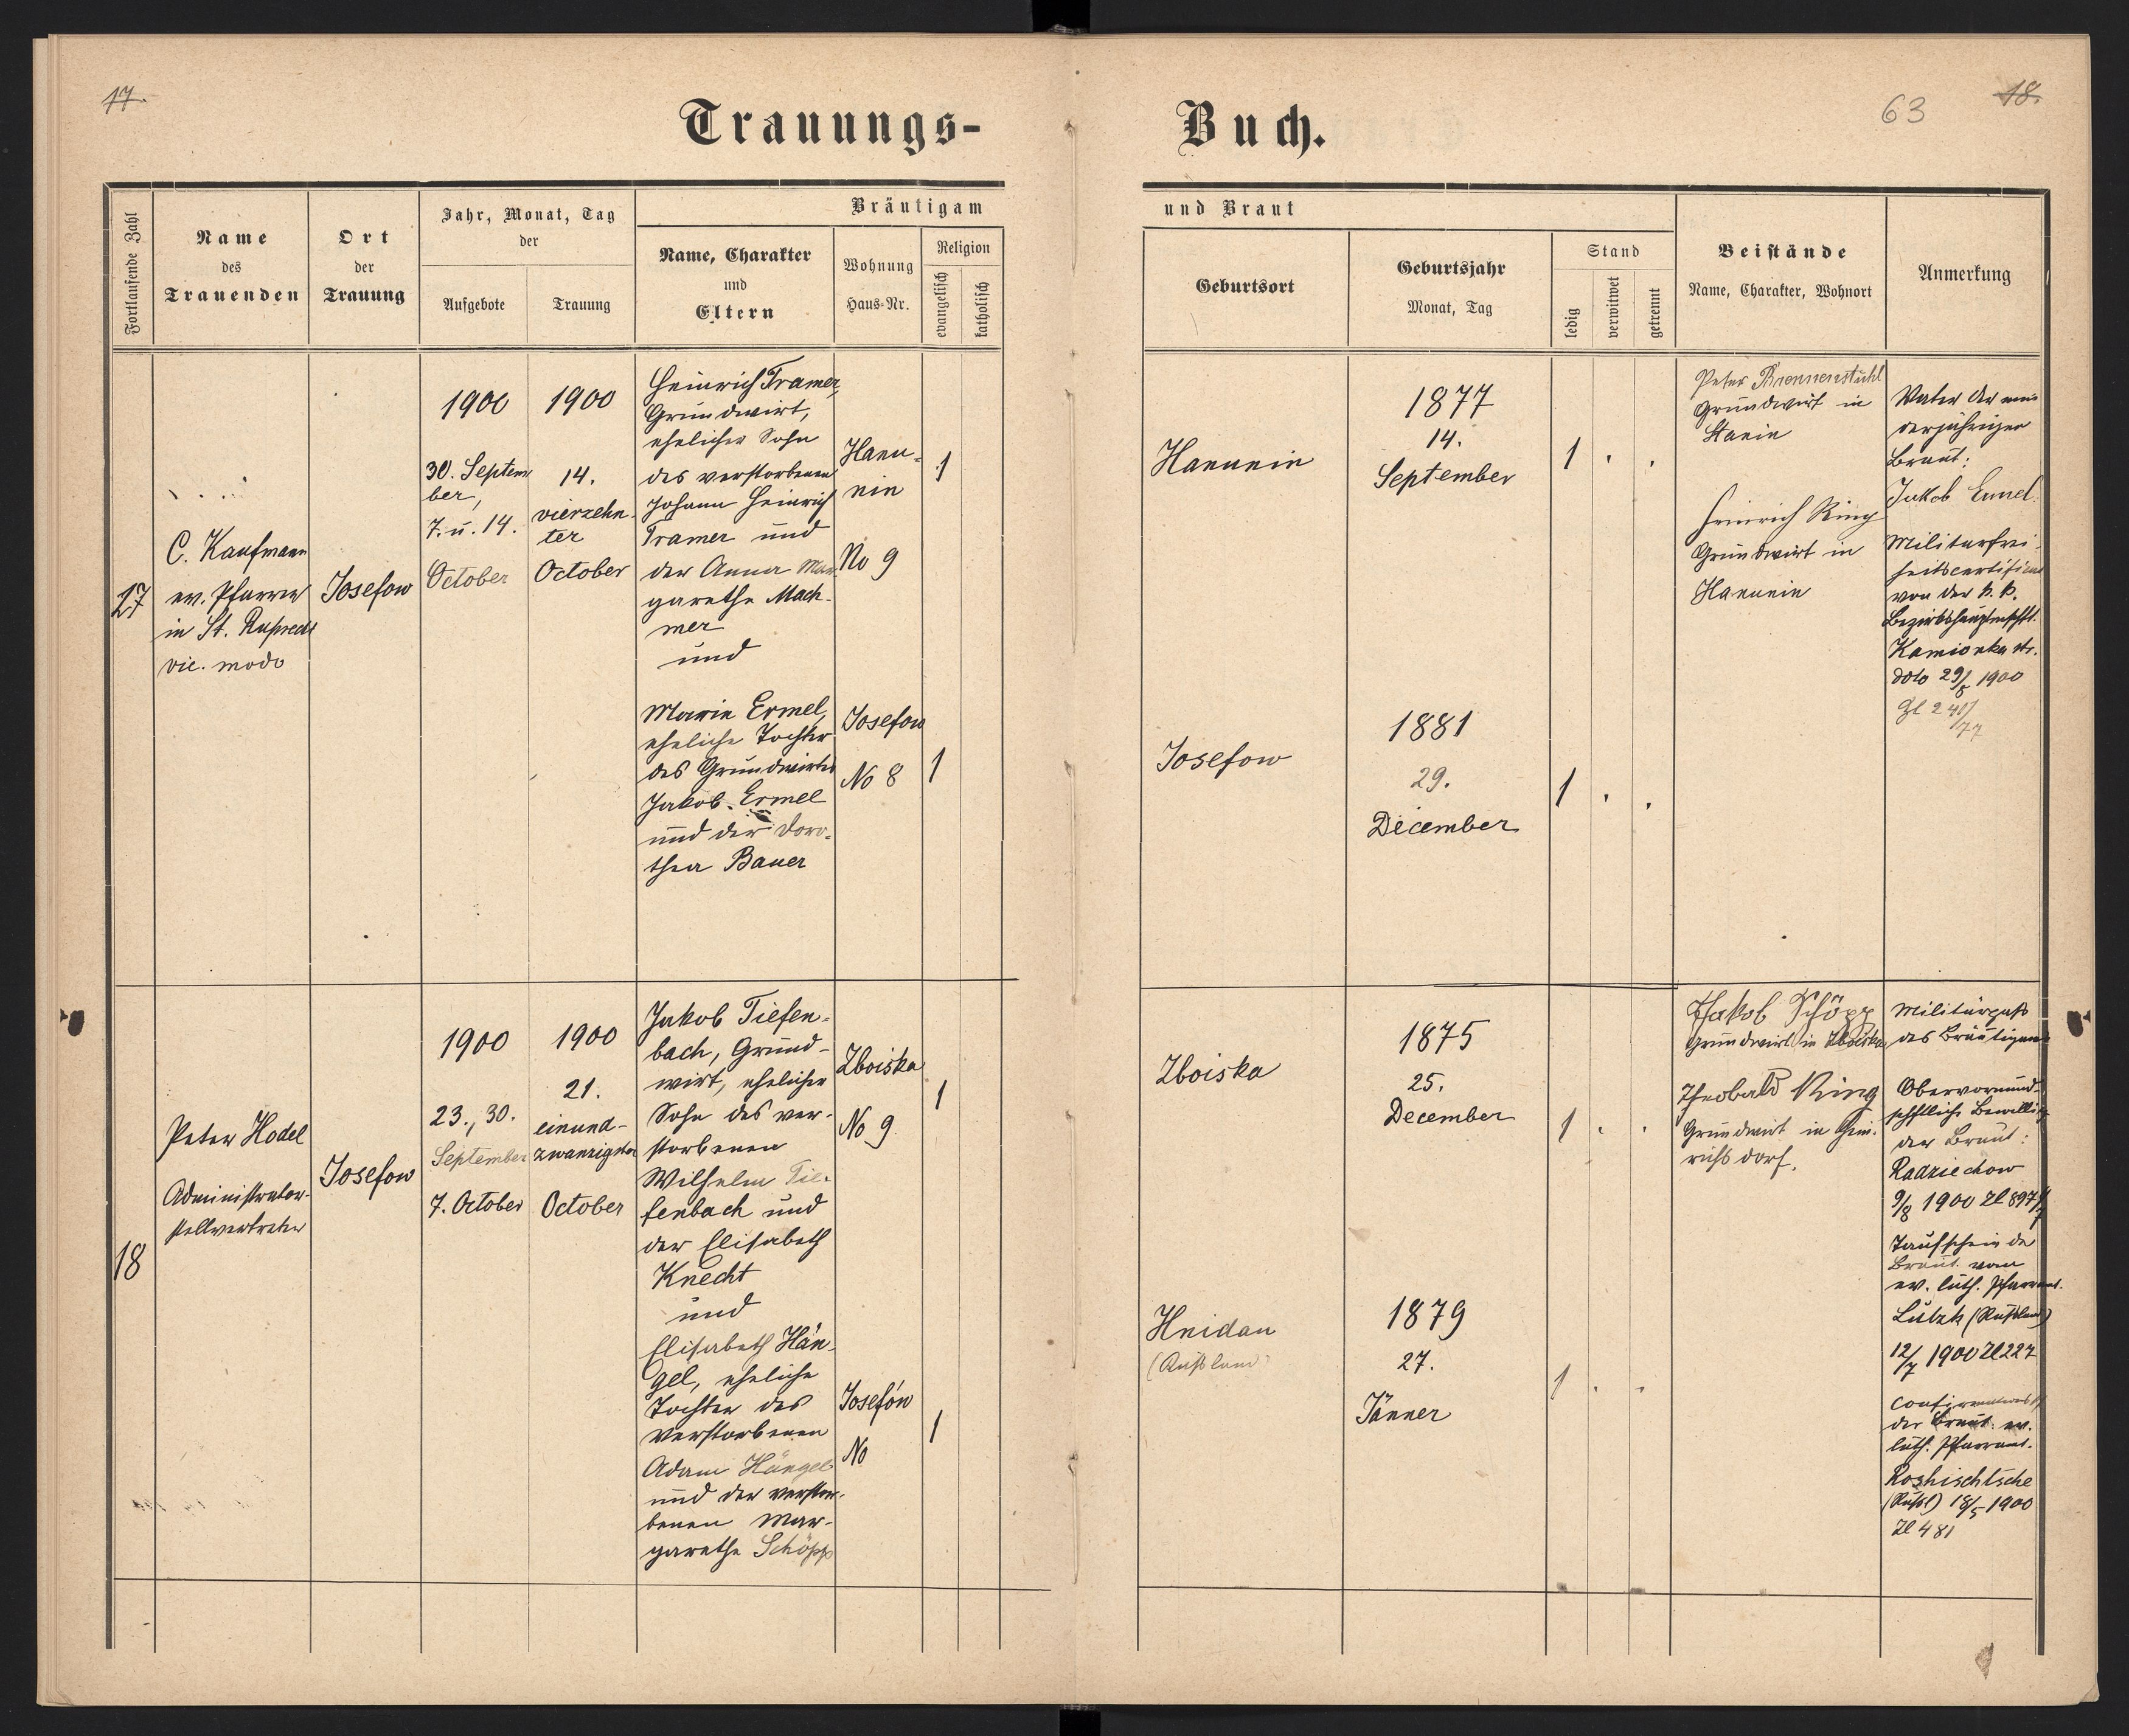 17.
Trauungs-
Buch.
63
18.
Fortlaufende Zahl
Name
des
Trauenden
Ort
der
Trauung
Jahr, Monat, Tag
der
Aufgebote
Trauung
Bräutigam
Name, Charakter
und
Eltern
Wohnung
Haus-Nr.
Religion
evangelisch
katholisch
und Braut
Geburtsort
Geburtsjahr
Monat, Tag
Stand
ledig
verwitwet
getrennt
Beistände
Name, Charakter, Wohnort
Anmerkung
17
C. Kaufmann
ev. Pfarrer
in St. Ruprecht
vic. modo
Josefow
1900
30. Septem
ber,
7. u. 14.
October
1900
14.
vierzehn-
ter
October
Heinrich Tramer,
Grundwirt,
ehelicher Sohn
des verstorbenen
Johann Heinrich
Tramer und
der Anna Mar-
garethe Mach-
mer
und
Hanu-
nin
No 9
1
Marie Ermel,
eheliche Tochter
des Grundwirtes
Jakob Ermel
und der Doro-
thea Bauer
Josefow
No 8
1
Hanunin
1877
14.
September
1
Josefow
1881
29.
December
1
Peter Brennenstuhl
Grundwirt in
Stanin
Heinrich Ring
Grundwirt in
Hanunin
Vater der min
derjährigen
Braut:
Jakob Ermel
Militärfrei-
heitscertificat
von der k. k.
Bezirkshauptmschft.
Kamionka str.
doto 29/5 1900
18
Peter Hodel
Administrator-
stellvertreter
Josefow
1900
23., 30.
September
7. October
1900
21.
einund-
zwanzigster
October
Jakob Tiefen-
bach, Grund-
wirt, ehelicher
Sohn des ver-
storbenen
Wilhelm Tie-
fenbach und
der Elisabeth
Knecht
und
Zboiska
No 9
1
Elisabeth Hän-
gel, eheliche
Tochter des
verstorbenen
Adam Hängel
und der verstor-
benen Mar-
garethe Schöpp
Josefów
No
1
Zboiska
1875
25.
December
1
Hnidau
(Rußland)
1879
27.
Jänner
1
Jakob Schöpp
Grundwirt in Zboiska
Theobald Ring
Grundwirt in Hein-
richsdorf.
Militärpaß
des Bräutigams
Obervormund-
schftliche Bewillig
der Braut:
Radziechow
9/8 1900 Zl 897
Taufschein der
Braut vom
ev. luth. Pfarramt.
Lutzk (Rußland)
12/7 1900 Zl 227
der Braut: ev.
luth. Pfarramt.
Roshischtsche
(Rußl) 18/5 1900
Zl 481